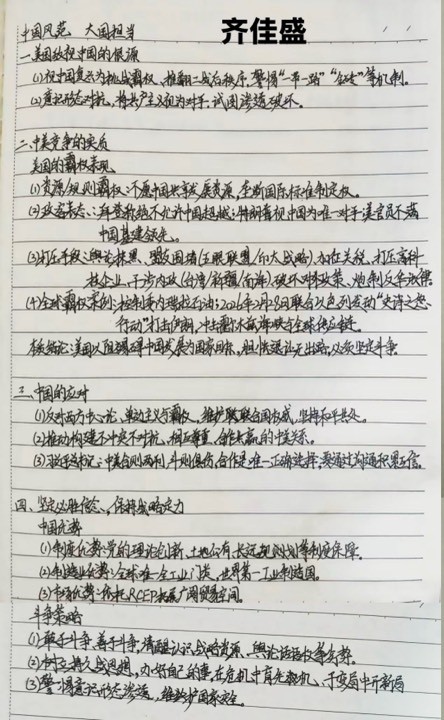 中国风范 大国担当
齐佳盛
一.美国敌视中国的根源
(1)视中国复兴为挑战霸权、推翻二战后秩序,警惕“一带一路”“金砖”等机制.
(2)意识形态对抗,将共产主义视为对手,试图渗透破坏.
二.中美竞争的实质
美国的霸权表现
(1)资源/规则霸权:不愿中国共享发展资源,垄断国际标准制定权.
(2)政客表态:拜登称绝不允许中国超越;特朗普视中国为唯一对手;美官员不满
中国基建领先.
(3)打压手段:舆论抹黑、盟友围堵(五眼联盟/印太战略)、加征关税、打压高科
技企业、干涉内政(台湾/新疆/南海)、破坏对华政策、炮制反华法律
(4)全球霸权案例:控制委内瑞拉石油;2026年2月28日联合以色列发动“史诗之怒
行动”打击伊朗,冲击霍尔木兹海峡与全球供应链.
核心结论:美国以阻碍中国发展为国家目标,胆怯退让无出路,必须坚定斗争
三.中国的应对
(1)反对西方中心论、单边主义与霸权,维护联合国权威,坚持和平共处.
(2)推动构建不冲突不对抗、相互尊重、合作共赢的中美关系.
(3)中美合则两利、斗则俱伤,合作是唯一正确选择,要通过沟通积累互信.
四.坚定必胜信念、保持战略定力
中国优势
(1)制度优势:党的理论创新、土地公有、长远规划等制度保障.
(2)制造业优势:全球唯一全工业门类,世界第一工业制造国.
(3)市场优势:依托RCEP拓展广阔贸易空间.
斗争策略
(1)敢于斗争、善于斗争,清醒认识战略资源、舆论话语权等劣势.
(2)树立持久战思想,办好自己的事,在危机中育先机、于变局中开新局
(3)警惕意识形态渗透,维护国家安全.